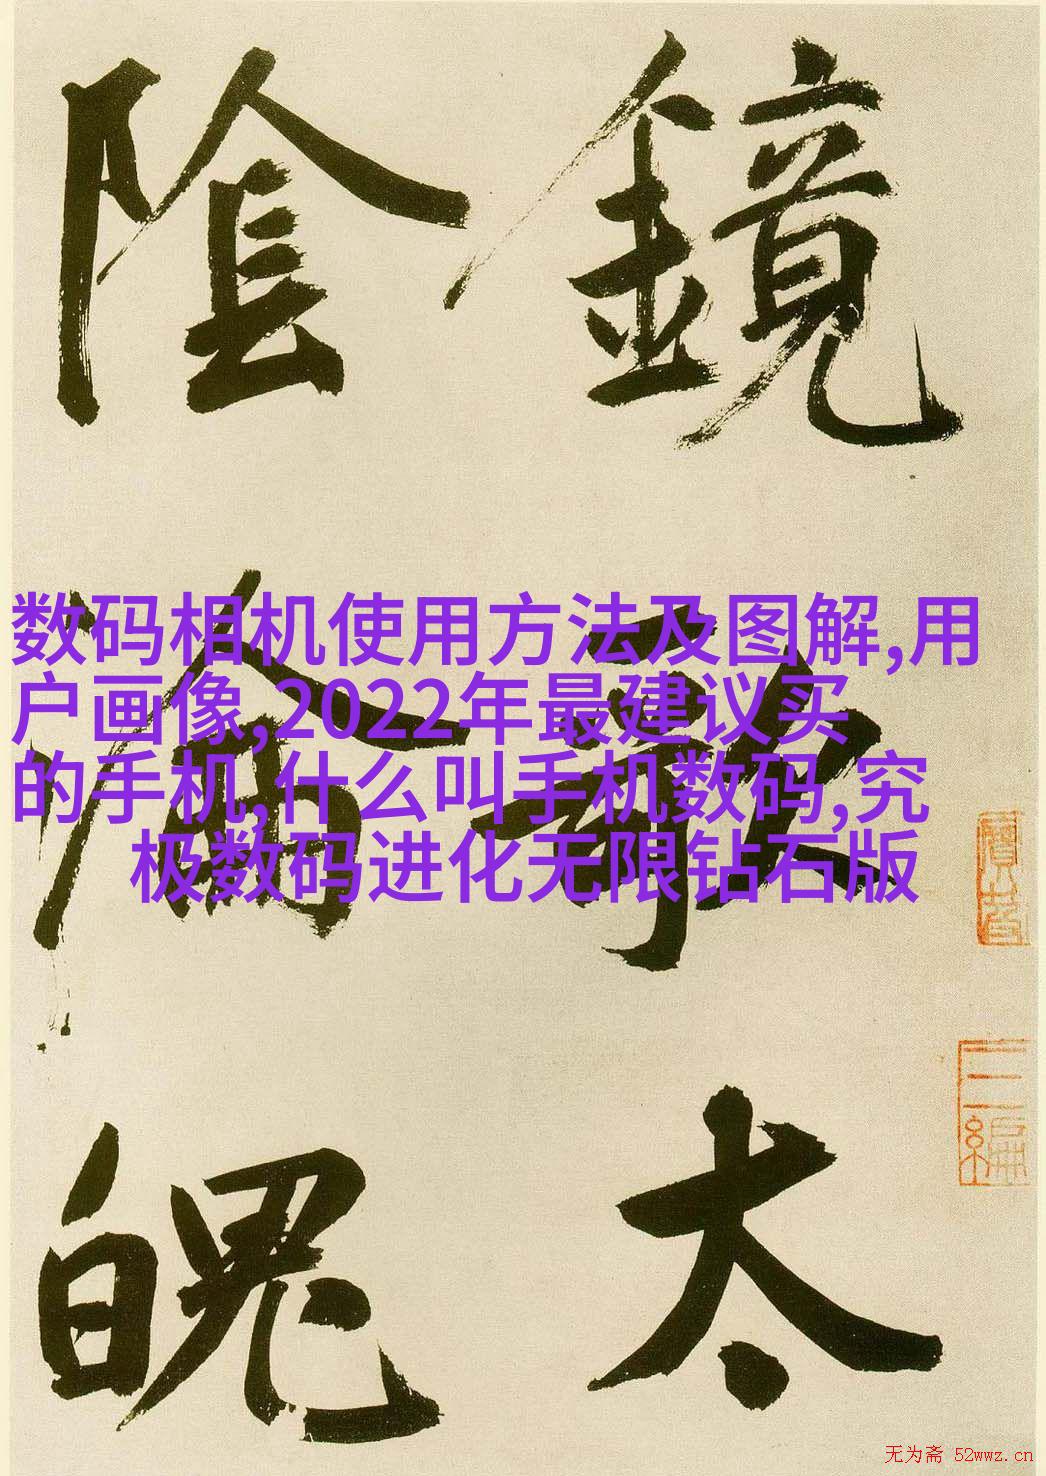 鏡
太
陰
魄
数码相机使用方法及图解,用
户画像,2022年最建议买
的手机,什么叫手机数码,究
极数码进化无限钻石版
无为斋 52wwz.cn